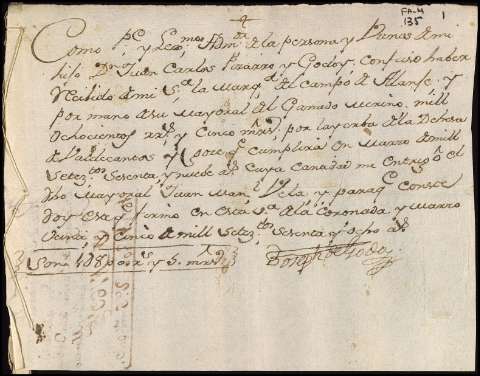 FA-4
135
1
Como pe. y Lexmo. Admor. de la persona y Bienes de mi
hijo Dn Juan Carlos Pizarro y Godoy, confieso haber
recibido de mi Sa. la Marqa. del Campo de Alanje, y
por mano de su Mayoral del Ganado Merino, mill
ochocientos rrs. y cinco mrs. por la yerba de la Dehesa
de Valdecantos y que cumplira en Marzo de mill
Setezos. Sesenta, y nuebe as. cuya cantidad me entrego el
dho Mayoral Juan Manl. Vela y para qe. conste
doy esta y firmo en esta Va. de la Coronada y Marzo
Veinte, y cinco de mill Setezos. Sesenta y ocho as.
Son 1800 rrs. y 5. mrs.